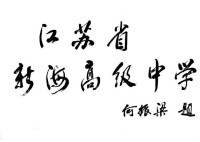 江苏省
新海高级中学
何振梁 题